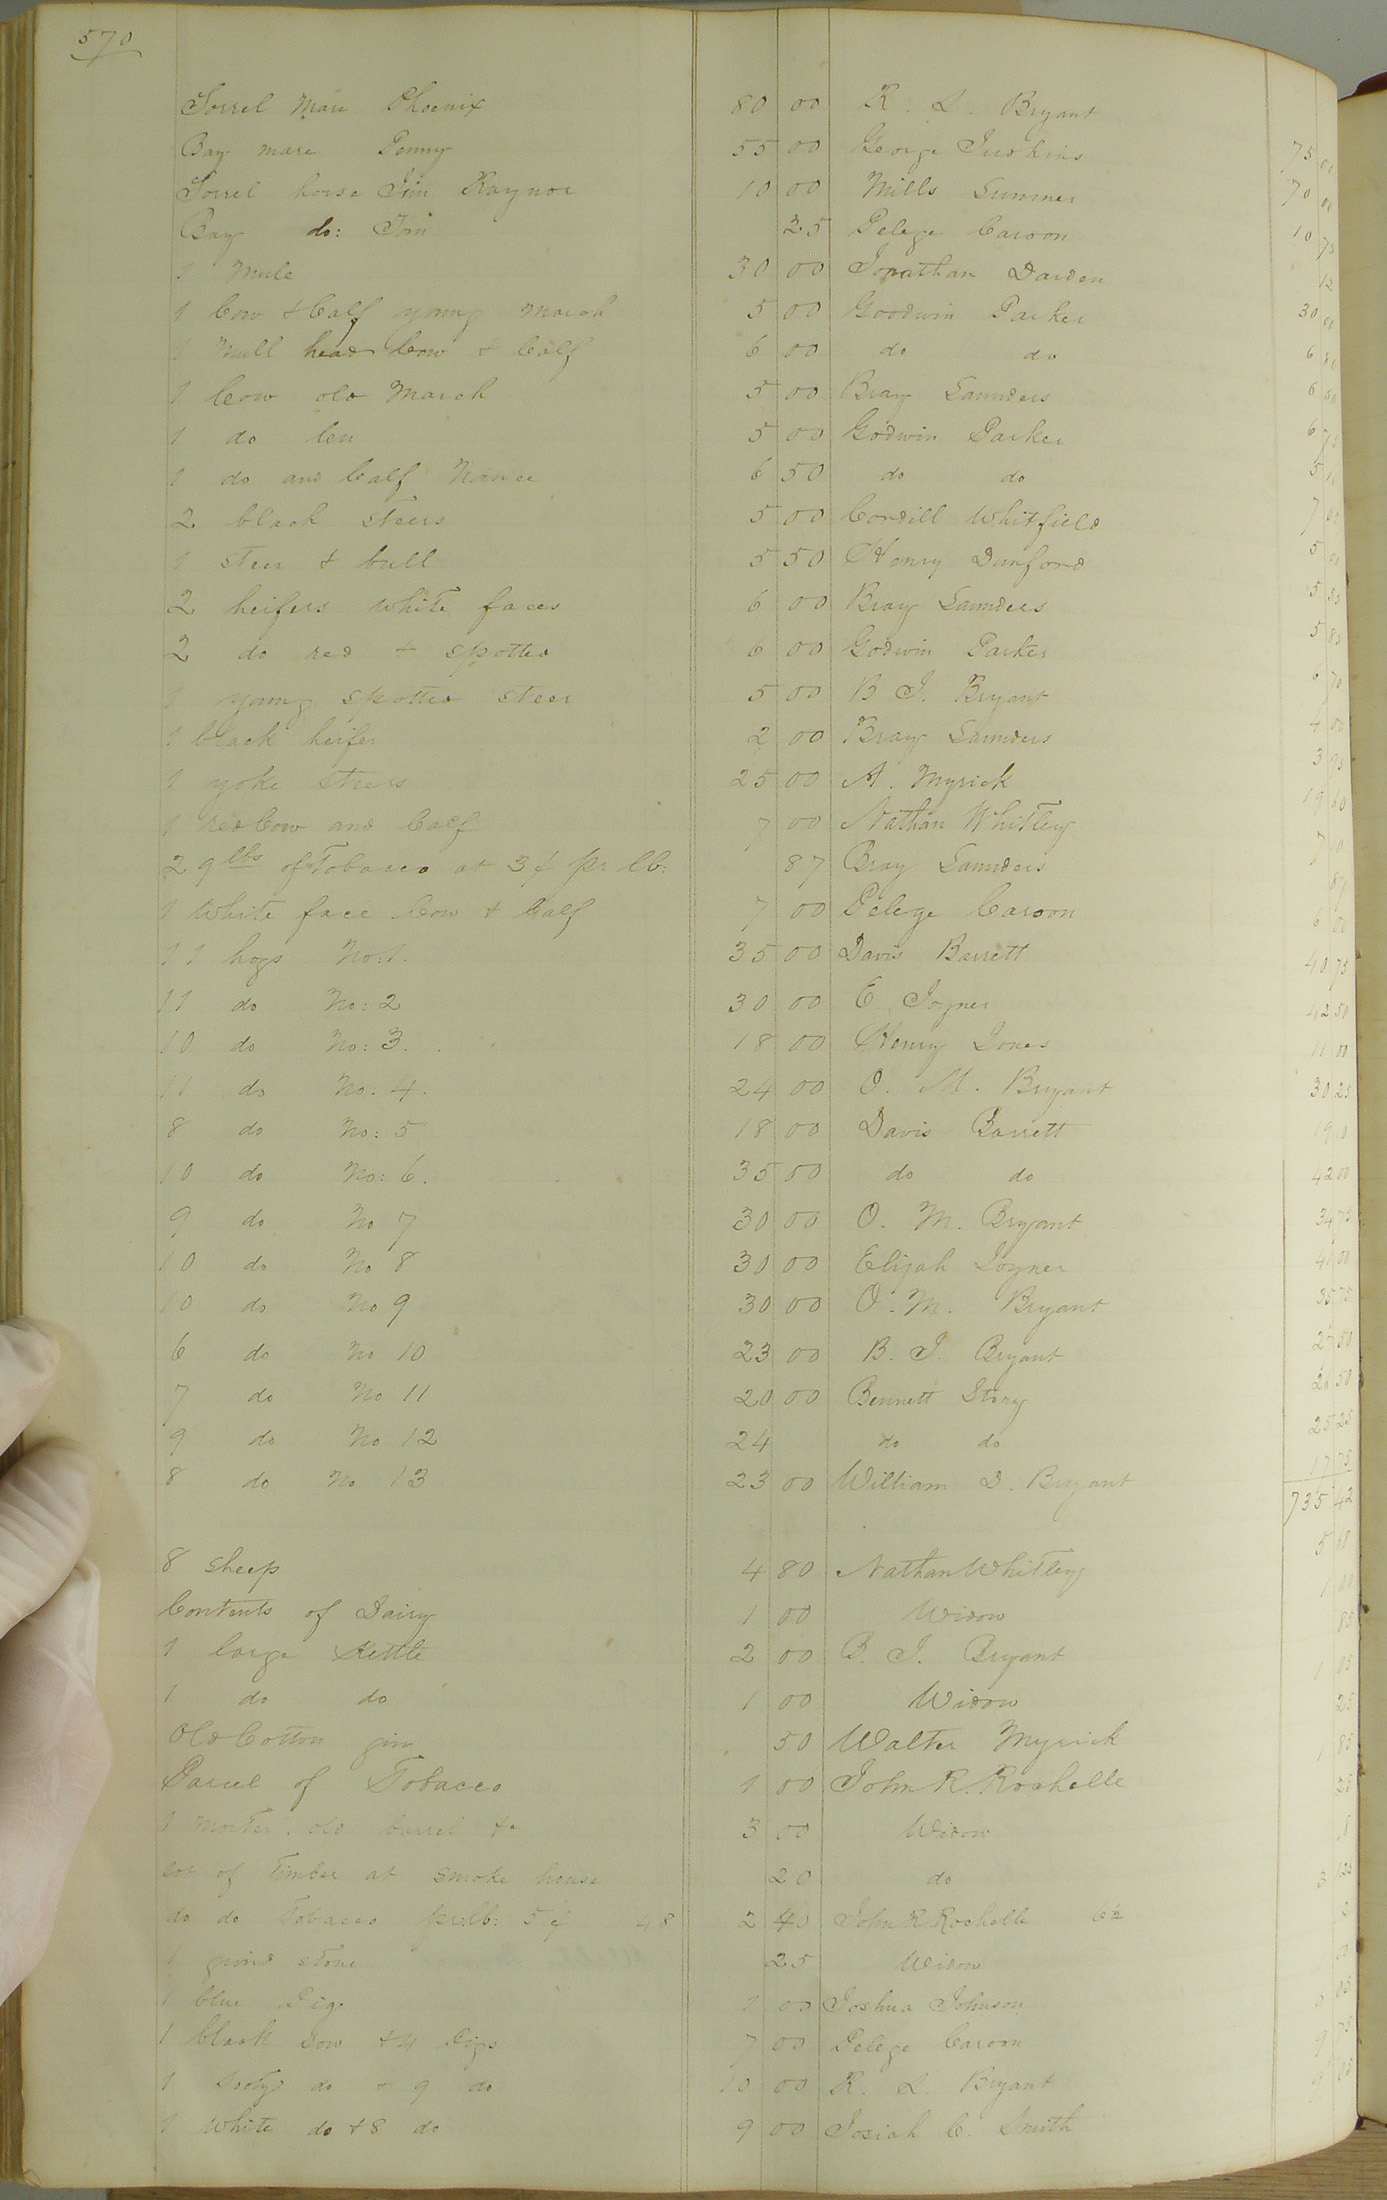 570
Sorrel Mare Phoenix 80 00 R. L. Bryant
Bay mare Penny 55 00 George Judkins 75 00
Sorrel horse Jim Raynor 10 00 Mills Sumner 70 00
Bay do: Tom 25 Pelege Carson 10 75
1 Mule 30 00 Jonathan Darden 12
1 Cow & Calf young March 5 00 Goodwin Parker 30 00
1 Mull head Cow & Calf 6 00 do do 6
1 Cow old March 5 00 Bray Saunders 6 50
1 do 5 00 Godwin Parker 6
1 do and Calf 6 50 do do 5
2 black steers 5 00 Cordill Whitfield 7
1 steer & bull 5 50 Henry Dunford 5
2 heifers white faces 6 00 Bray Saunders 5
2 do red & spotted 6 00 Godwin Parker 5
1 young spotted steer 5 00 B J. Bryant 6 70
1 black heifer 2 00 Bray Saunders 4 00
1 yoke steers 25 00 A. Myrick 3
1 red Cow and Calf 7 00 Nathan Whitley 19 60
29 lbs of Tobacco at 3¢ pr lb: 87 Bray Saunders 7
1 White face Cow & Calf 7 00 Pelege Carson 87
11 hogs No: 1. 35 00 Davis Barrett 40 75
11 do No: 2 30 00 E Joyner 42 50
10 do No: 3. 18 00 Henry Jones 11 00
11 do No: 4. 24 00 O. M. Bryant 30 25
8 do No: 5 18 00 Davis Barrett 19
10 do No: 6. 35 00 do do 42 00
9 do No 7 30 00 O. M. Bryant 34 75
10 do No 8 30 00 Elijah Joyner 41 00
10 do No 9 30 00 O. M. Bryant 35 75
6 do No 10 23 00 B. J. Bryant 27 50
7 do No 11 20 00 Bennett Story 20 50
9 do No 12 24 do do 25 25
8 do No 13 23 00 William D. Bryant 17 75
735 42
8 Sheep 4 80 Nathan Whitley 5
Contents of Dairy 1 00 Widow 1 00
1 large Kettle 2 00 B. J. Bryant 85
1 do do 1 00 Widow 1 05
Old Cotton gin 50 Walter Myrick 25
Parcel of Tobacco 1 00 John R. Rochelle 1 85
1 Morter, old barrel &c 3 00 Widow
Lot of Timber at smoke house 20 do
do do Tobacco pr lb: 5¢ 48 2 40 John R Rochelle 6½
1 grind stone 25 Widow
1 blue Pig 1 00 Joshua Johnson
1 black Sow & 4 Pigs 7 00 Pelege Carson
1 do & 9 do 10 00 R. L. Bryant
1 White do & 8 do 9 00 Josiah C. Smith